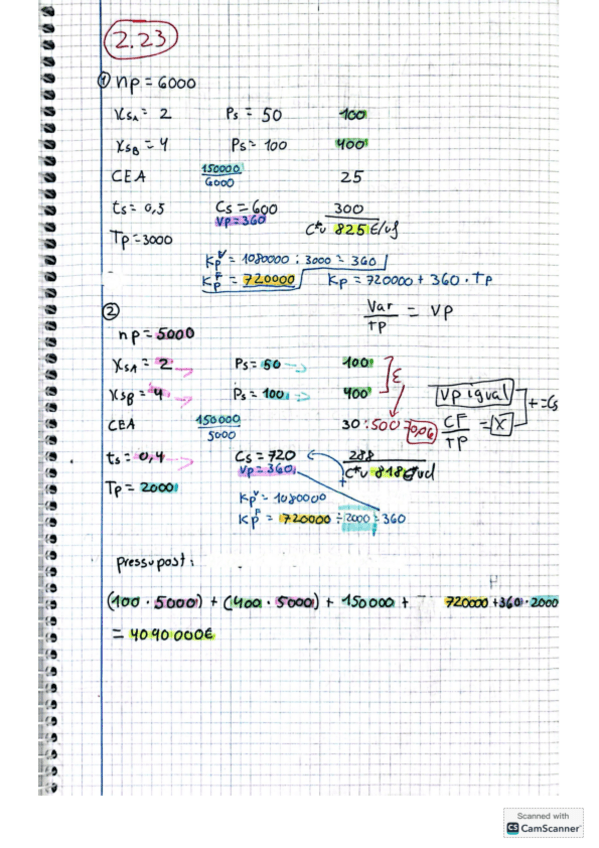 2.23
① np = 6000
XsA = 2 Ps = 50 100
XsB = 4 Ps = 100 400
CEA 150000/6000 25
ts = 0,5 Cs = 600 300
Vp = 360 C*u 825 €/uf
Tp = 3000
Kp^V = 1080000 : 3000 = 360
Kp^F = 720000 Kp = 720000 + 360 · Tp
② Var/TP = VP
np = 5000
XsA = 2 Ps = 50 100
XsB = 4 Ps = 100 400 Σ
Vp igual
CEA 150000/5000 30 : 500 = 0,06 CF/TP = X + = Cs
ts = 0,4 Cs = 720 288
Vp = 360 C*u 818 €/ud
Tp = 2000
Kp^V = 1080000
Kp^F = 720000 ÷ 2000 = 360
pressupost:
(100 · 5000) + (400 · 5000) + 150000 + 720000 + 360 · 2000
= 4090000€
Scanned with
CS CamScanner